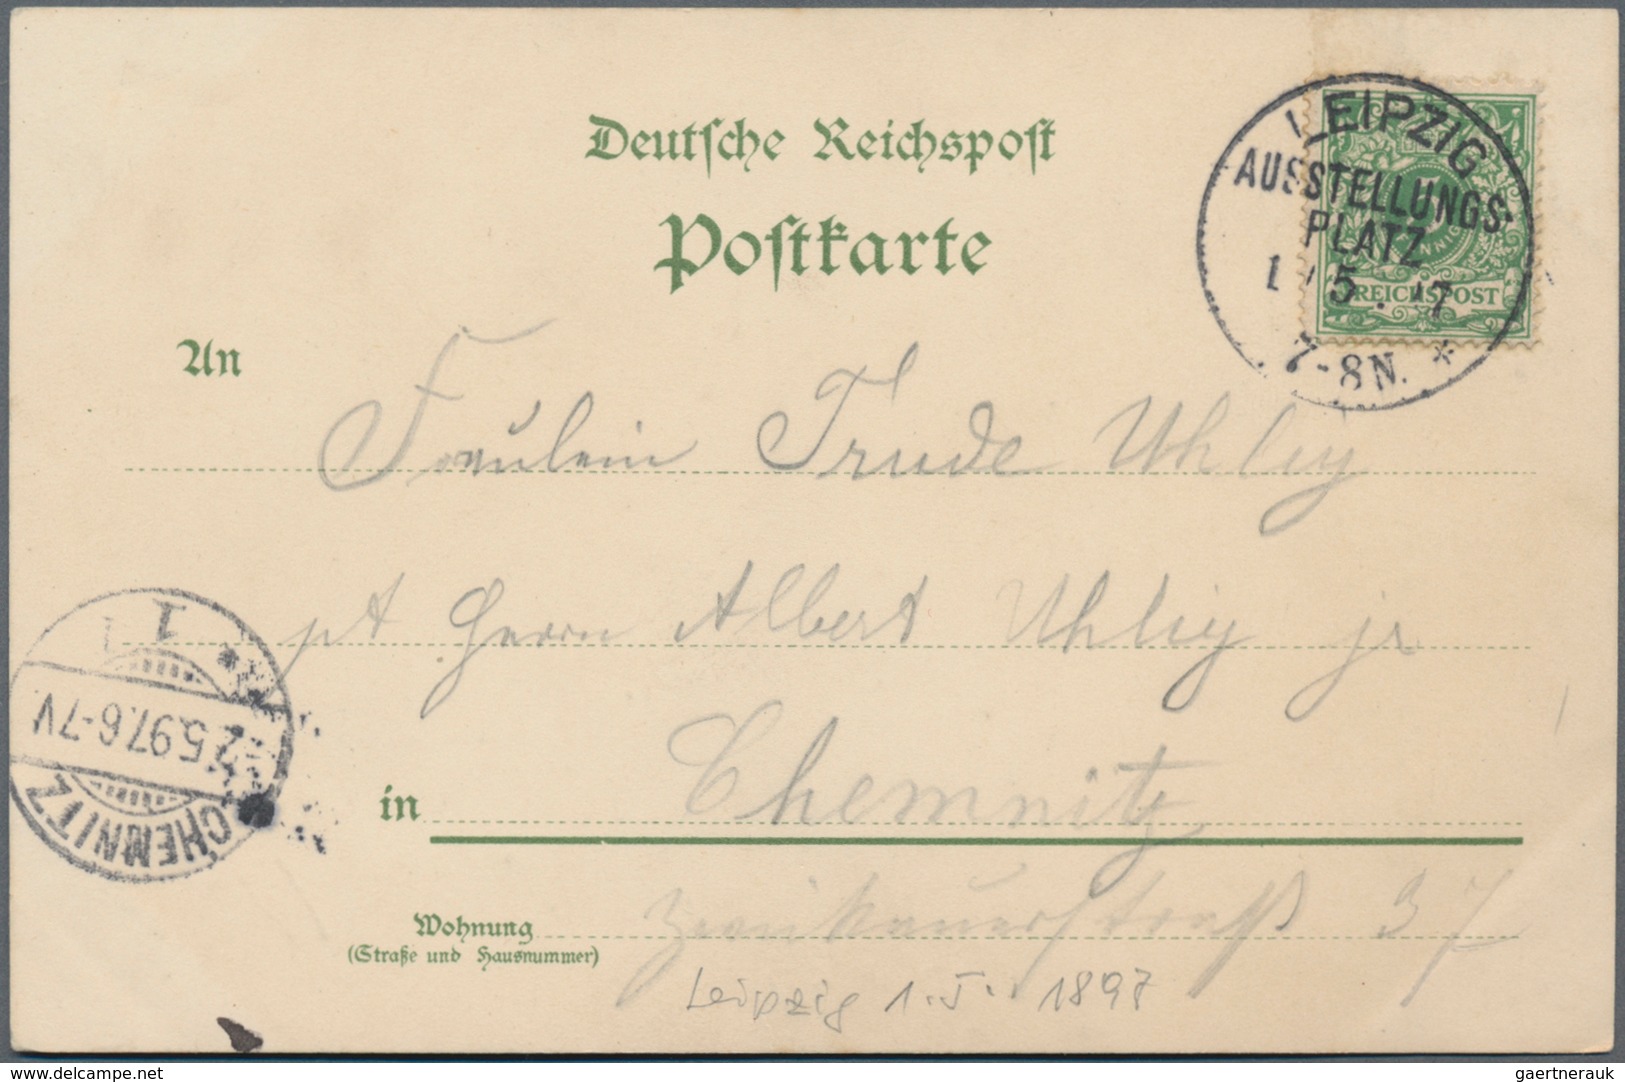 Deutsche Reichspost
Postkarte
LEIPZIG
AUSSTELLUNGS-
PLATZ
1 5. 97
7-8 N. *
5
REICHSPOST
An
Fräulein Trude Uhlig
pt Herrn Albert Uhlig jr
in Chemnitz
Wohnung
(Straße und Hausnummer)
Zwickauerstraße 37
Leipzig 1.5. 1897
1
2.5.97.6-7V.
CHEMNITZ
www.delcampe.net
gaertnerauk